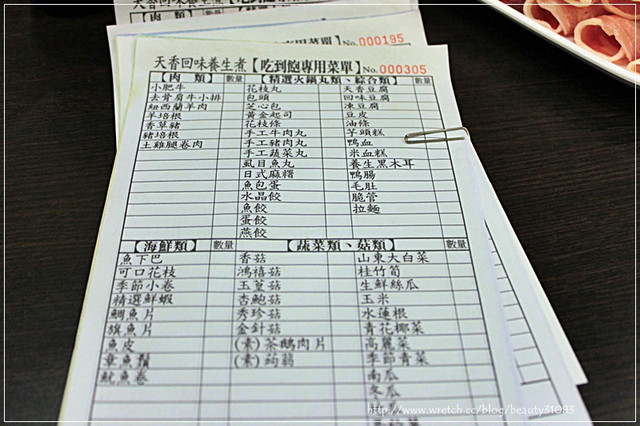 天香回味養生煮【吃到飽專用菜單】
No.000195
天香回味養生煮【吃到飽專用菜單】No.000305
【肉 類】 數量 【精選火鍋丸類、綜合類】 數量
小肥牛 花枝丸 天香豆腐
去骨肩牛小排 包頭 回味豆腐
紐西蘭羊肉 芝心包 凍豆腐
羊培根 黃金起司 豆皮
香草豬 花枝條 油條
豬培根 手工牛肉丸 芋頭糕
土雞腿卷肉 手工豬肉丸 鴨血
手工蔬菜丸 米血糕
虱目魚丸 養生黑木耳
日式麻糬 鴨腸
魚包蛋 毛肚
水晶餃 脆管
魚餃 拉麵
蛋餃
燕餃
【海鮮類】 數量 【蔬菜類、菇類】 數量
魚下巴 香菇 山東大白菜
可口花枝 鴻禧菇 桂竹筍
季節小卷 玉蕈菇 生鮮絲瓜
精選鮮蝦 杏鮑菇 玉米
鯛魚片 秀珍菇 水蓮根
旗魚片 金針菇 青花椰菜
魚皮 (素)茶鵝肉片 高麗菜
章魚鬚 (素)蒟蒻 季節青菜
魷魚卷 南瓜
冬瓜
http://www.wretch.cc/blog/beauty31083